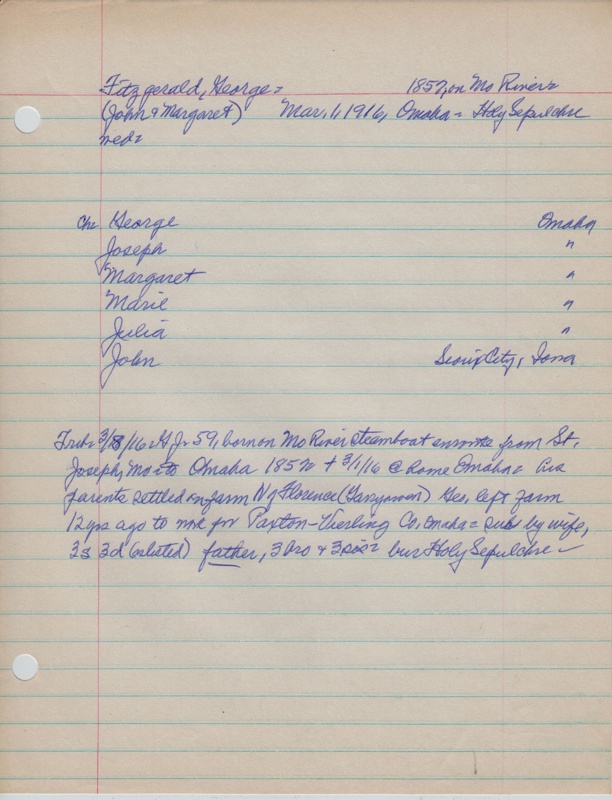 Fitzgerald, George = 1857, on Mo River =
(John & Margaret) Mar. 1, 1916, Omaha = Holy Sepulchre
med =
Ch: George Omaha
Joseph "
Margaret "
Marie "
Julia "
John Sioux City, Iowa
3/18/16 59, born on Mo River steamboat enroute from St.
Joseph, Mo to Omaha 1857 + 3/1/16 @ home Omaha = his
parents settled on farm N of Florence Geo. left farm
12 yrs ago to wrk for Paxton-Vierling Co, Omaha = surv by wife,
3s 3d (as listed) father, 3 bro & 3 sis = bur Holy Sepulchre